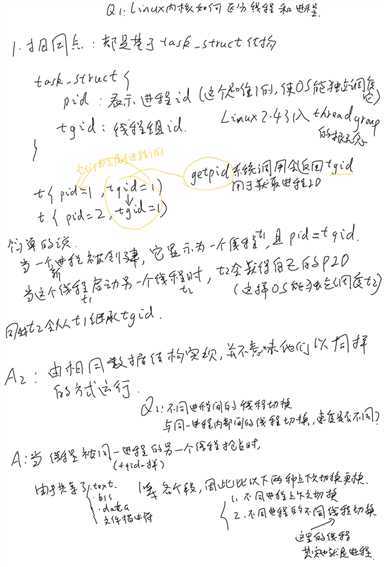 Q1: Linux内核如何区分线程和进程.
1. 相同点: 都是基于task_struct结构
task_struct {
pid: 表示进程id (这个是唯一的, 使OS能独立调度它)
tgid: 线程组id.
Linux2.4引入threadgroup
的概念
}
getpid系统调用会返回tgid
用于获取进程ID
t1{ pid=1, tgid=1)
t2{ pid=2, tgid=1)
简单的说.
当一个新进程被创建, 它显示为一个线程t1, 且pid=tgid.
当这个线程t1启动另一个线程t2时, t2会获得自己的PID
(这样OS能独立调度t2)
同时t2会从t1继承tgid.
A2: 由相同数据结构实现, 并不意味他们以同样
的方式运行.
Q1: 不同进程间的线程切换
与同一进程内部间的线程切换, 速度有不同?
A: 当线程被同一进程的另一个线程抢占时,
(tgid一样)
由于共享了 .text. 等各个段, 因此比以下两种上下文切换更快.
bss
.data
文件描述符
1. 不同进程上下文切换
2. 不同进程的不同线程切换.
这里的线程
其实就是进程.